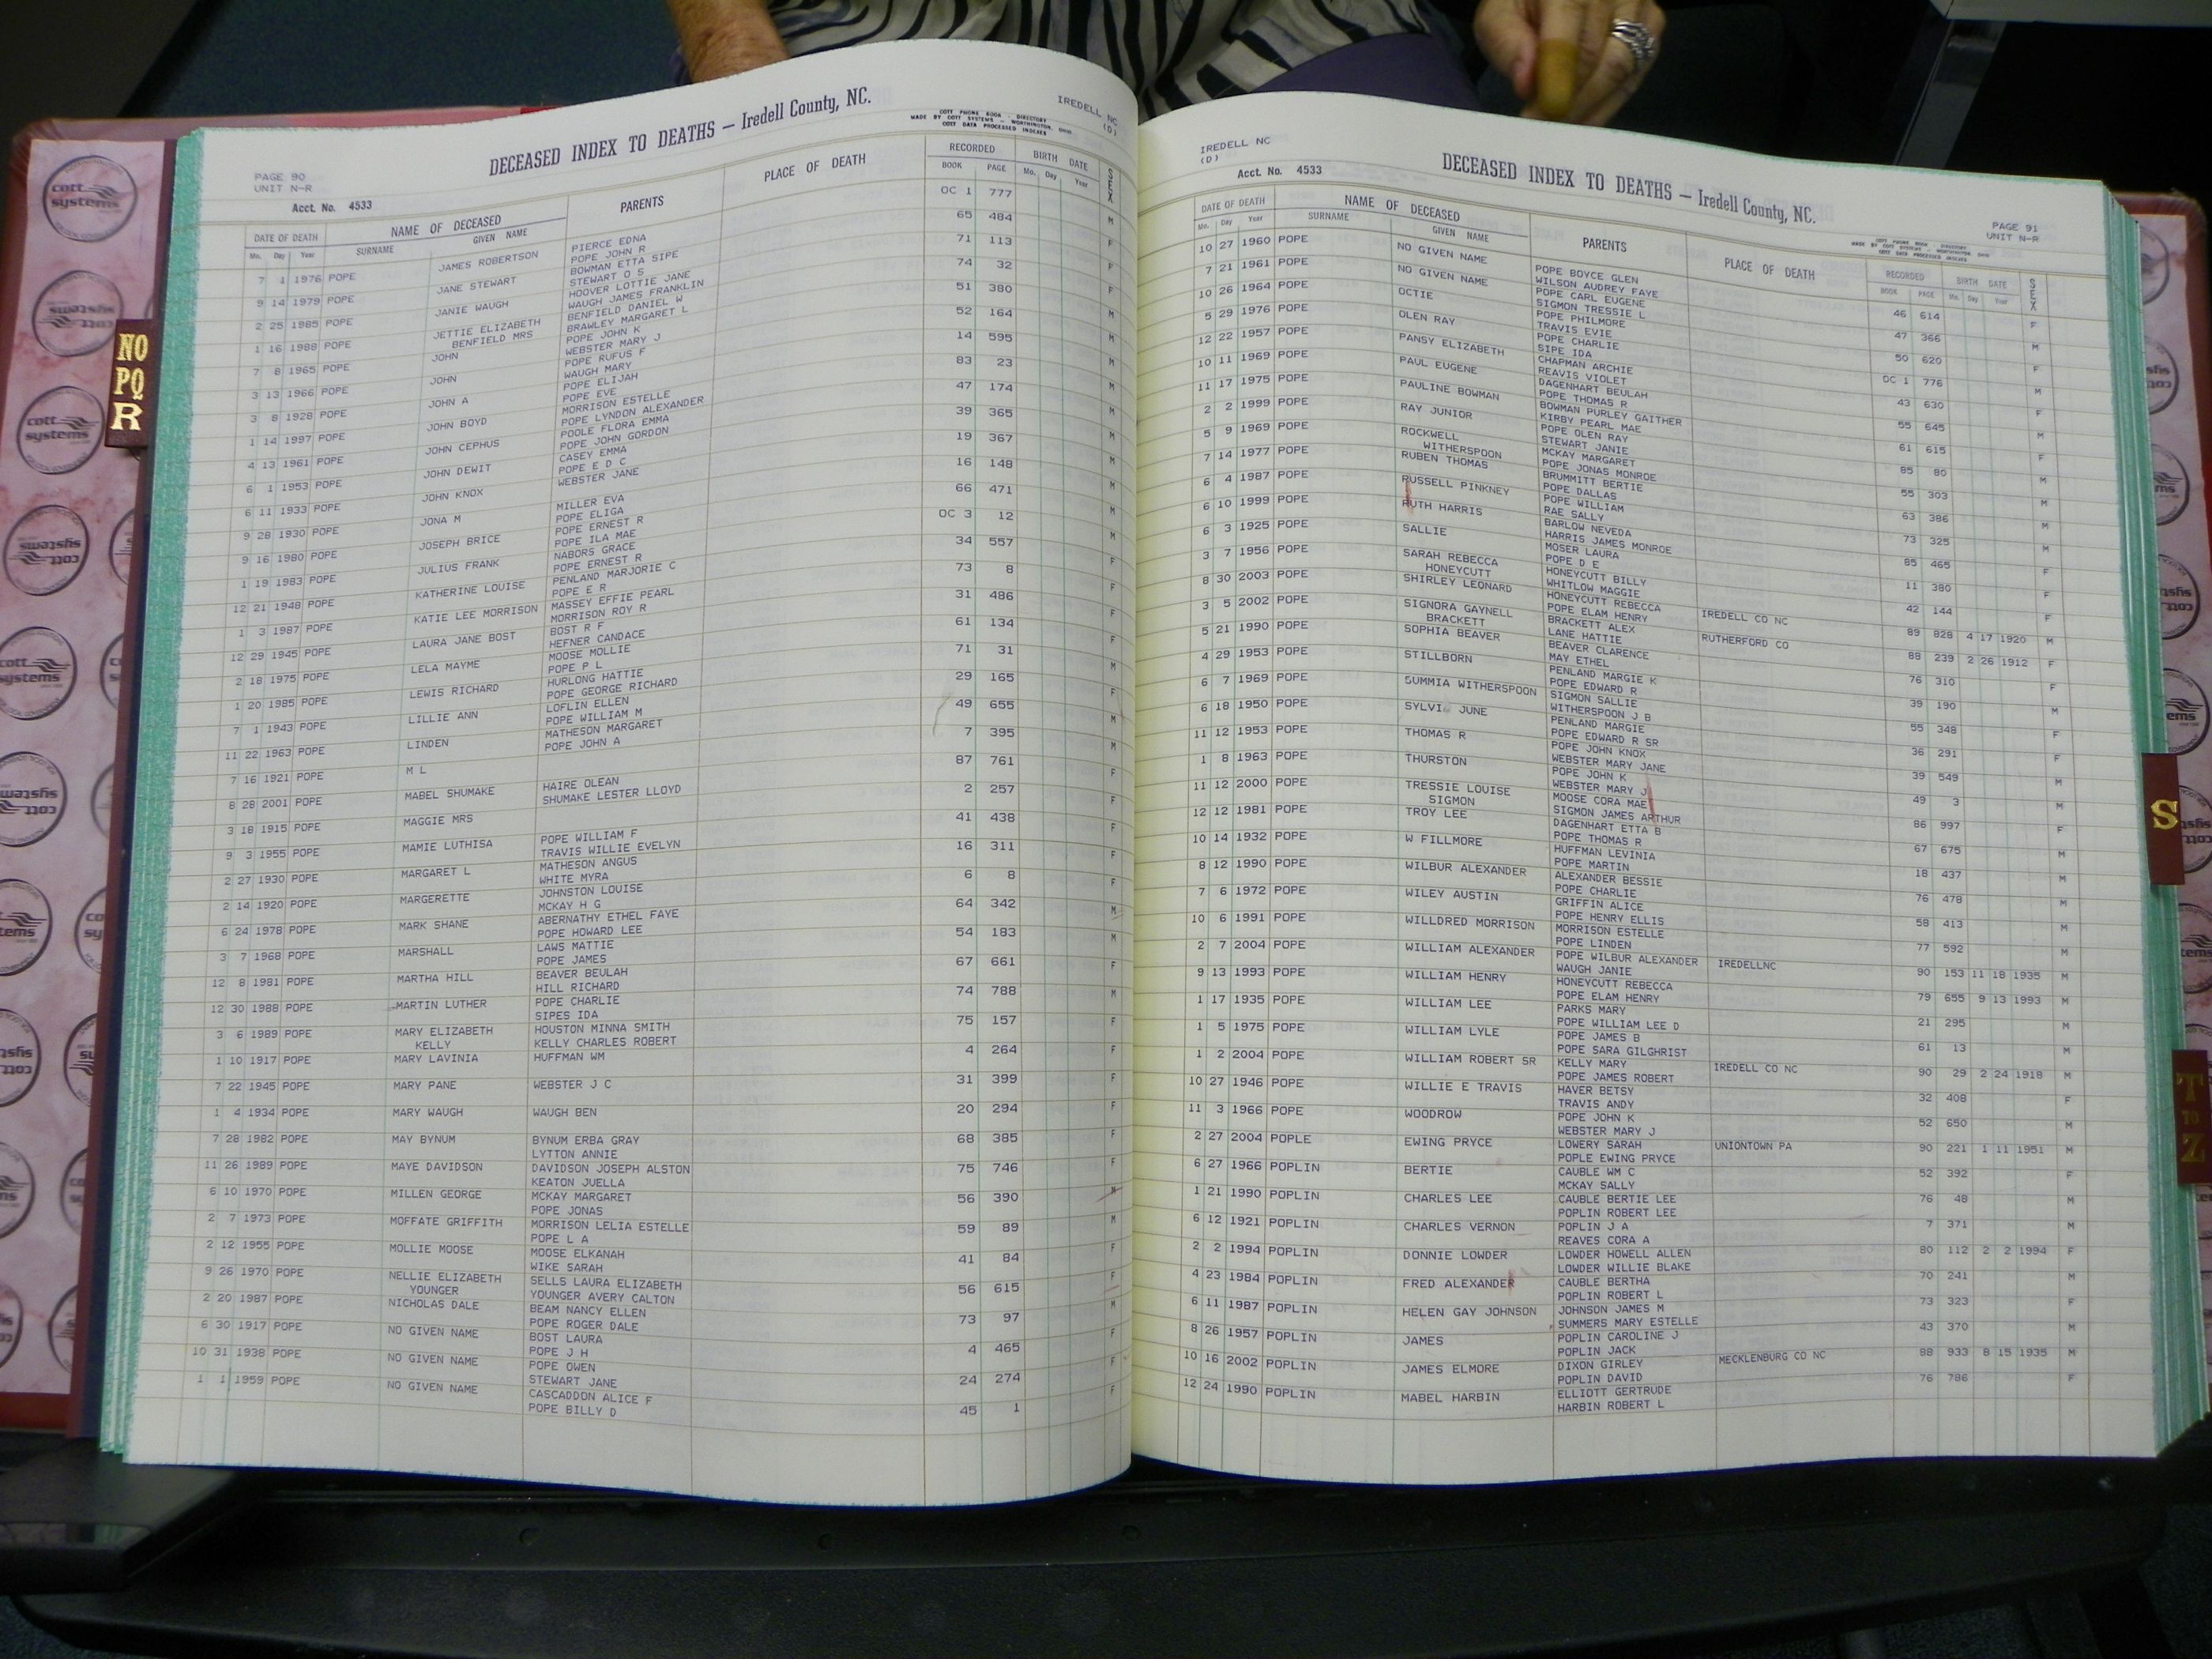 DECEASED INDEX TO DEATHS — Iredell County, NC.
IREDELL NC
(D)
COTT PHONE BOOK - DIRECTORY
MADE BY COTT SYSTEMS - WORTHINGTON, OHIO
COTT DATA PROCESSED INDEXES
PAGE 90
UNIT N-R
Acct. No. 4533
DATE OF DEATH NAME OF DECEASED PARENTS PLACE OF DEATH RECORDED BIRTH DATE SEX
Mo. Day Year SURNAME GIVEN NAME BOOK PAGE Mo. Day Year
7 1 1976 POPE JAMES ROBERTSON PIERCE EDNA OC 1 777 M
POPE JOHN R
9 14 1979 POPE JANE STEWART BOWMAN ETTA SIPE 65 484 F
STEWART O S
2 25 1985 POPE JANIE WAUGH HOOVER LOTTIE JANE 71 113 F
WAUGH JAMES FRANKLIN
1 16 1988 POPE JETTIE ELIZABETH BENFIELD DANIEL W 74 32 F
BENFIELD MRS BRAWLEY MARGARET L
7 8 1965 POPE JOHN POPE JOHN K 51 380 M
WEBSTER MARY J
3 13 1966 POPE JOHN POPE RUFUS F 52 164 M
WAUGH MARY
3 8 1928 POPE JOHN A POPE ELIJAH 14 595 M
POPE EVE
1 14 1997 POPE JOHN BOYD MORRISON ESTELLE 83 23 M
POPE LYNDON ALEXANDER
4 13 1961 POPE JOHN CEPHUS POOLE FLORA EMMA 47 174 M
POPE JOHN GORDON
6 1 1953 POPE JOHN DEWIT CASEY EMMA 39 365 M
POPE E D C
6 11 1933 POPE JOHN KNOX WEBSTER JANE 19 367 M
9 28 1930 POPE JONA M MILLER EVA 16 148 M
POPE ELIGA
9 16 1980 POPE JOSEPH BRICE POPE ERNEST R 66 471 M
POPE ILA MAE
1 19 1983 POPE JULIUS FRANK NABORS GRACE OC 3 12 M
POPE ERNEST R
12 21 1948 POPE KATHERINE LOUISE PENLAND MARJORIE C 34 557 F
POPE E R
1 3 1987 POPE KATIE LEE MORRISON MASSEY EFFIE PEARL 73 8 F
MORRISON ROY R
12 29 1945 POPE LAURA JANE BOST BOST R F 31 486 F
HEFNER CANDACE
2 18 1975 POPE LELA MAYME MOOSE MOLLIE 61 134 F
POPE P L
1 20 1985 POPE LEWIS RICHARD HURLONG HATTIE 71 31 M
POPE GEORGE RICHARD
7 1 1943 POPE LILLIE ANN LOFLIN ELLEN 29 165 F
POPE WILLIAM M
11 22 1963 POPE LINDEN MATHESON MARGARET 49 655 M
POPE JOHN A
7 16 1921 POPE M L 7 395 M
8 28 2001 POPE MABEL SHUMAKE HAIRE OLEAN 87 761 F
SHUMAKE LESTER LLOYD
3 18 1915 POPE MAGGIE MRS 2 257 F
9 3 1955 POPE MAMIE LUTHISA POPE WILLIAM F 41 438 F
TRAVIS WILLIE EVELYN
2 27 1930 POPE MARGARET L MATHESON ANGUS 16 311 F
WHITE MYRA
2 14 1920 POPE MARGERETTE JOHNSTON LOUISE 6 8 F
MCKAY H G
6 24 1978 POPE MARK SHANE ABERNATHY ETHEL FAYE 64 342 M
POPE HOWARD LEE
3 7 1968 POPE MARSHALL LAWS MATTIE 54 183 M
POPE JAMES
12 8 1981 POPE MARTHA HILL BEAVER BEULAH 67 661 F
HILL RICHARD
12 30 1988 POPE MARTIN LUTHER POPE CHARLIE 74 788 M
SIPES IDA
3 6 1989 POPE MARY ELIZABETH HOUSTON MINNA SMITH 75 157 F
KELLY KELLY CHARLES ROBERT
1 10 1917 POPE MARY LAVINIA HUFFMAN WM 4 264 F
7 22 1945 POPE MARY PANE WEBSTER J C 31 399 F
1 4 1934 POPE MARY WAUGH WAUGH BEN 20 294 F
7 28 1982 POPE MAY BYNUM BYNUM ERBA GRAY 68 385 F
LYTTON ANNIE
11 26 1989 POPE MAYE DAVIDSON DAVIDSON JOSEPH ALSTON 75 746 F
KEATON JUELLA
6 10 1970 POPE MILLEN GEORGE MCKAY MARGARET 56 390 M
POPE JONAS
2 7 1973 POPE MOFFATE GRIFFITH MORRISON LELIA ESTELLE 59 89 M
POPE L A
2 12 1955 POPE MOLLIE MOOSE MOOSE ELKANAH 41 84 F
WIKE SARAH
9 26 1970 POPE NELLIE ELIZABETH SELLS LAURA ELIZABETH 56 615 F
YOUNGER YOUNGER AVERY CALTON
2 20 1987 POPE NICHOLAS DALE BEAM NANCY ELLEN 73 97 M
POPE ROGER DALE
6 30 1917 POPE NO GIVEN NAME BOST LAURA 4 465 F
POPE J H
10 31 1938 POPE NO GIVEN NAME POPE OWEN 24 274 F
STEWART JANE
1 1 1959 POPE NO GIVEN NAME CASCADDON ALICE F 45 1 F
POPE BILLY D
IREDELL NC
(D)
Acct. No. 4533
DECEASED INDEX TO DEATHS — Iredell County, NC.
PAGE 91
UNIT N-R
DATE OF DEATH NAME OF DECEASED PARENTS PLACE OF DEATH RECORDED BIRTH DATE SEX
Mo. Day Year SURNAME GIVEN NAME BOOK PAGE Mo. Day Year
10 27 1960 POPE NO GIVEN NAME POPE BOYCE GLEN 46 614 F
WILSON AUDREY FAYE
7 21 1961 POPE NO GIVEN NAME POPE CARL EUGENE 47 366 M
SIGMON TRESSIE L
10 26 1964 POPE OCTIE POPE PHILMORE 50 620 F
TRAVIS EVIE
5 29 1976 POPE OLEN RAY POPE CHARLIE OC 1 776 M
SIPE IDA
12 22 1957 POPE PANSY ELIZABETH CHAPMAN ARCHIE 43 630 F
REAVIS VIOLET
10 11 1969 POPE PAUL EUGENE DAGENHART BEULAH 55 645 M
POPE THOMAS R
11 17 1975 POPE PAULINE BOWMAN BOWMAN PURLEY GAITHER 61 615 F
KIRBY PEARL MAE
2 2 1999 POPE RAY JUNIOR POPE OLEN RAY 85 80 M
STEWART JANIE
5 9 1969 POPE ROCKWELL MCKAY MARGARET 55 303 M
WITHERSPOON POPE JONAS MONROE
7 14 1977 POPE RUBEN THOMAS BRUMMITT BERTIE 63 386 M
POPE DALLAS
6 4 1987 POPE RUSSELL PINKNEY POPE WILLIAM 73 325 M
RAE SALLY
6 10 1999 POPE RUTH HARRIS BARLOW NEVEDA 85 465 F
HARRIS JAMES MONROE
6 3 1925 POPE SALLIE MOSER LAURA 11 380 F
POPE D E
3 7 1956 POPE SARAH REBECCA HONEYCUTT BILLY 42 144 F
HONEYCUTT WHITLOW MAGGIE
8 30 2003 POPE SHIRLEY LEONARD HONEYCUTT REBECCA IREDELL CO NC 89 828 4 17 1920 M
POPE ELAM HENRY
3 5 2002 POPE SIGNORA GAYNELL BRACKETT ALEX RUTHERFORD CO 88 239 2 26 1912 F
BRACKETT LANE HATTIE
5 21 1990 POPE SOPHIA BEAVER BEAVER CLARENCE 76 310 F
MAY ETHEL
4 29 1953 POPE STILLBORN PENLAND MARGIE K 39 190 M
POPE EDWARD R
6 7 1969 POPE SUMMIA WITHERSPOON SIGMON SALLIE 55 348 F
WITHERSPOON J B
6 18 1950 POPE SYLVI JUNE PENLAND MARGIE 36 291 F
POPE EDWARD R SR
11 12 1953 POPE THOMAS R POPE JOHN KNOX 39 549 M
WEBSTER MARY JANE
1 8 1963 POPE THURSTON POPE JOHN K 49 3 M
WEBSTER MARY J
11 12 2000 POPE TRESSIE LOUISE MOOSE CORA MAE 86 997 F
SIGMON SIGMON JAMES ARTHUR
12 12 1981 POPE TROY LEE DAGENHART ETTA B 67 675 M
POPE THOMAS R
10 14 1932 POPE W FILLMORE HUFFMAN LEVINIA 18 437 M
POPE MARTIN
8 12 1990 POPE WILBUR ALEXANDER ALEXANDER BESSIE 76 478 M
POPE CHARLIE
7 6 1972 POPE WILEY AUSTIN GRIFFIN ALICE 58 413 M
POPE HENRY ELLIS
10 6 1991 POPE WILLDRED MORRISON MORRISON ESTELLE 77 592 M
POPE LINDEN
2 7 2004 POPE WILLIAM ALEXANDER POPE WILBUR ALEXANDER IREDELLNC 90 153 11 18 1935 M
WAUGH JANIE
9 13 1993 POPE WILLIAM HENRY HONEYCUTT REBECCA 79 655 9 13 1993 M
POPE ELAM HENRY
1 17 1935 POPE WILLIAM LEE PARKS MARY 21 295 M
POPE WILLIAM LEE D
1 5 1975 POPE WILLIAM LYLE POPE JAMES B 61 13 M
POPE SARA GILGHRIST
1 2 2004 POPE WILLIAM ROBERT SR KELLY MARY IREDELL CO NC 90 29 2 24 1918 M
POPE JAMES ROBERT
10 27 1946 POPE WILLIE E TRAVIS HAVER BETSY 32 408 F
TRAVIS ANDY
11 3 1966 POPE WOODROW POPE JOHN K 52 650 M
WEBSTER MARY J
2 27 2004 POPLE EWING PRYCE LOWERY SARAH UNIONTOWN PA 90 221 1 11 1951 M
POPLE EWING PRYCE
6 27 1966 POPLIN BERTIE CAUBLE WM C 52 392 F
MCKAY SALLY
1 21 1990 POPLIN CHARLES LEE CAUBLE BERTIE LEE 76 48 M
POPLIN ROBERT LEE
6 12 1921 POPLIN CHARLES VERNON POPLIN J A 7 371 M
REAVES CORA A
2 2 1994 POPLIN DONNIE LOWDER LOWDER HOWELL ALLEN 80 112 2 2 1994 F
LOWDER WILLIE BLAKE
4 23 1984 POPLIN FRED ALEXANDER CAUBLE BERTHA 70 241 M
POPLIN ROBERT L
6 11 1987 POPLIN HELEN GAY JOHNSON JOHNSON JAMES M 73 323 F
SUMMERS MARY ESTELLE
8 26 1957 POPLIN JAMES POPLIN CAROLINE J 43 370 M
POPLIN JACK
10 16 2002 POPLIN JAMES ELMORE DIXON GIRLEY MECKLENBURG CO NC 88 933 8 15 1935 M
POPLIN DAVID
12 24 1990 POPLIN MABEL HARBIN ELLIOTT GERTRUDE 76 786 F
HARBIN ROBERT L
NO
PQ
R
S
T
TO
Z
cott
systems